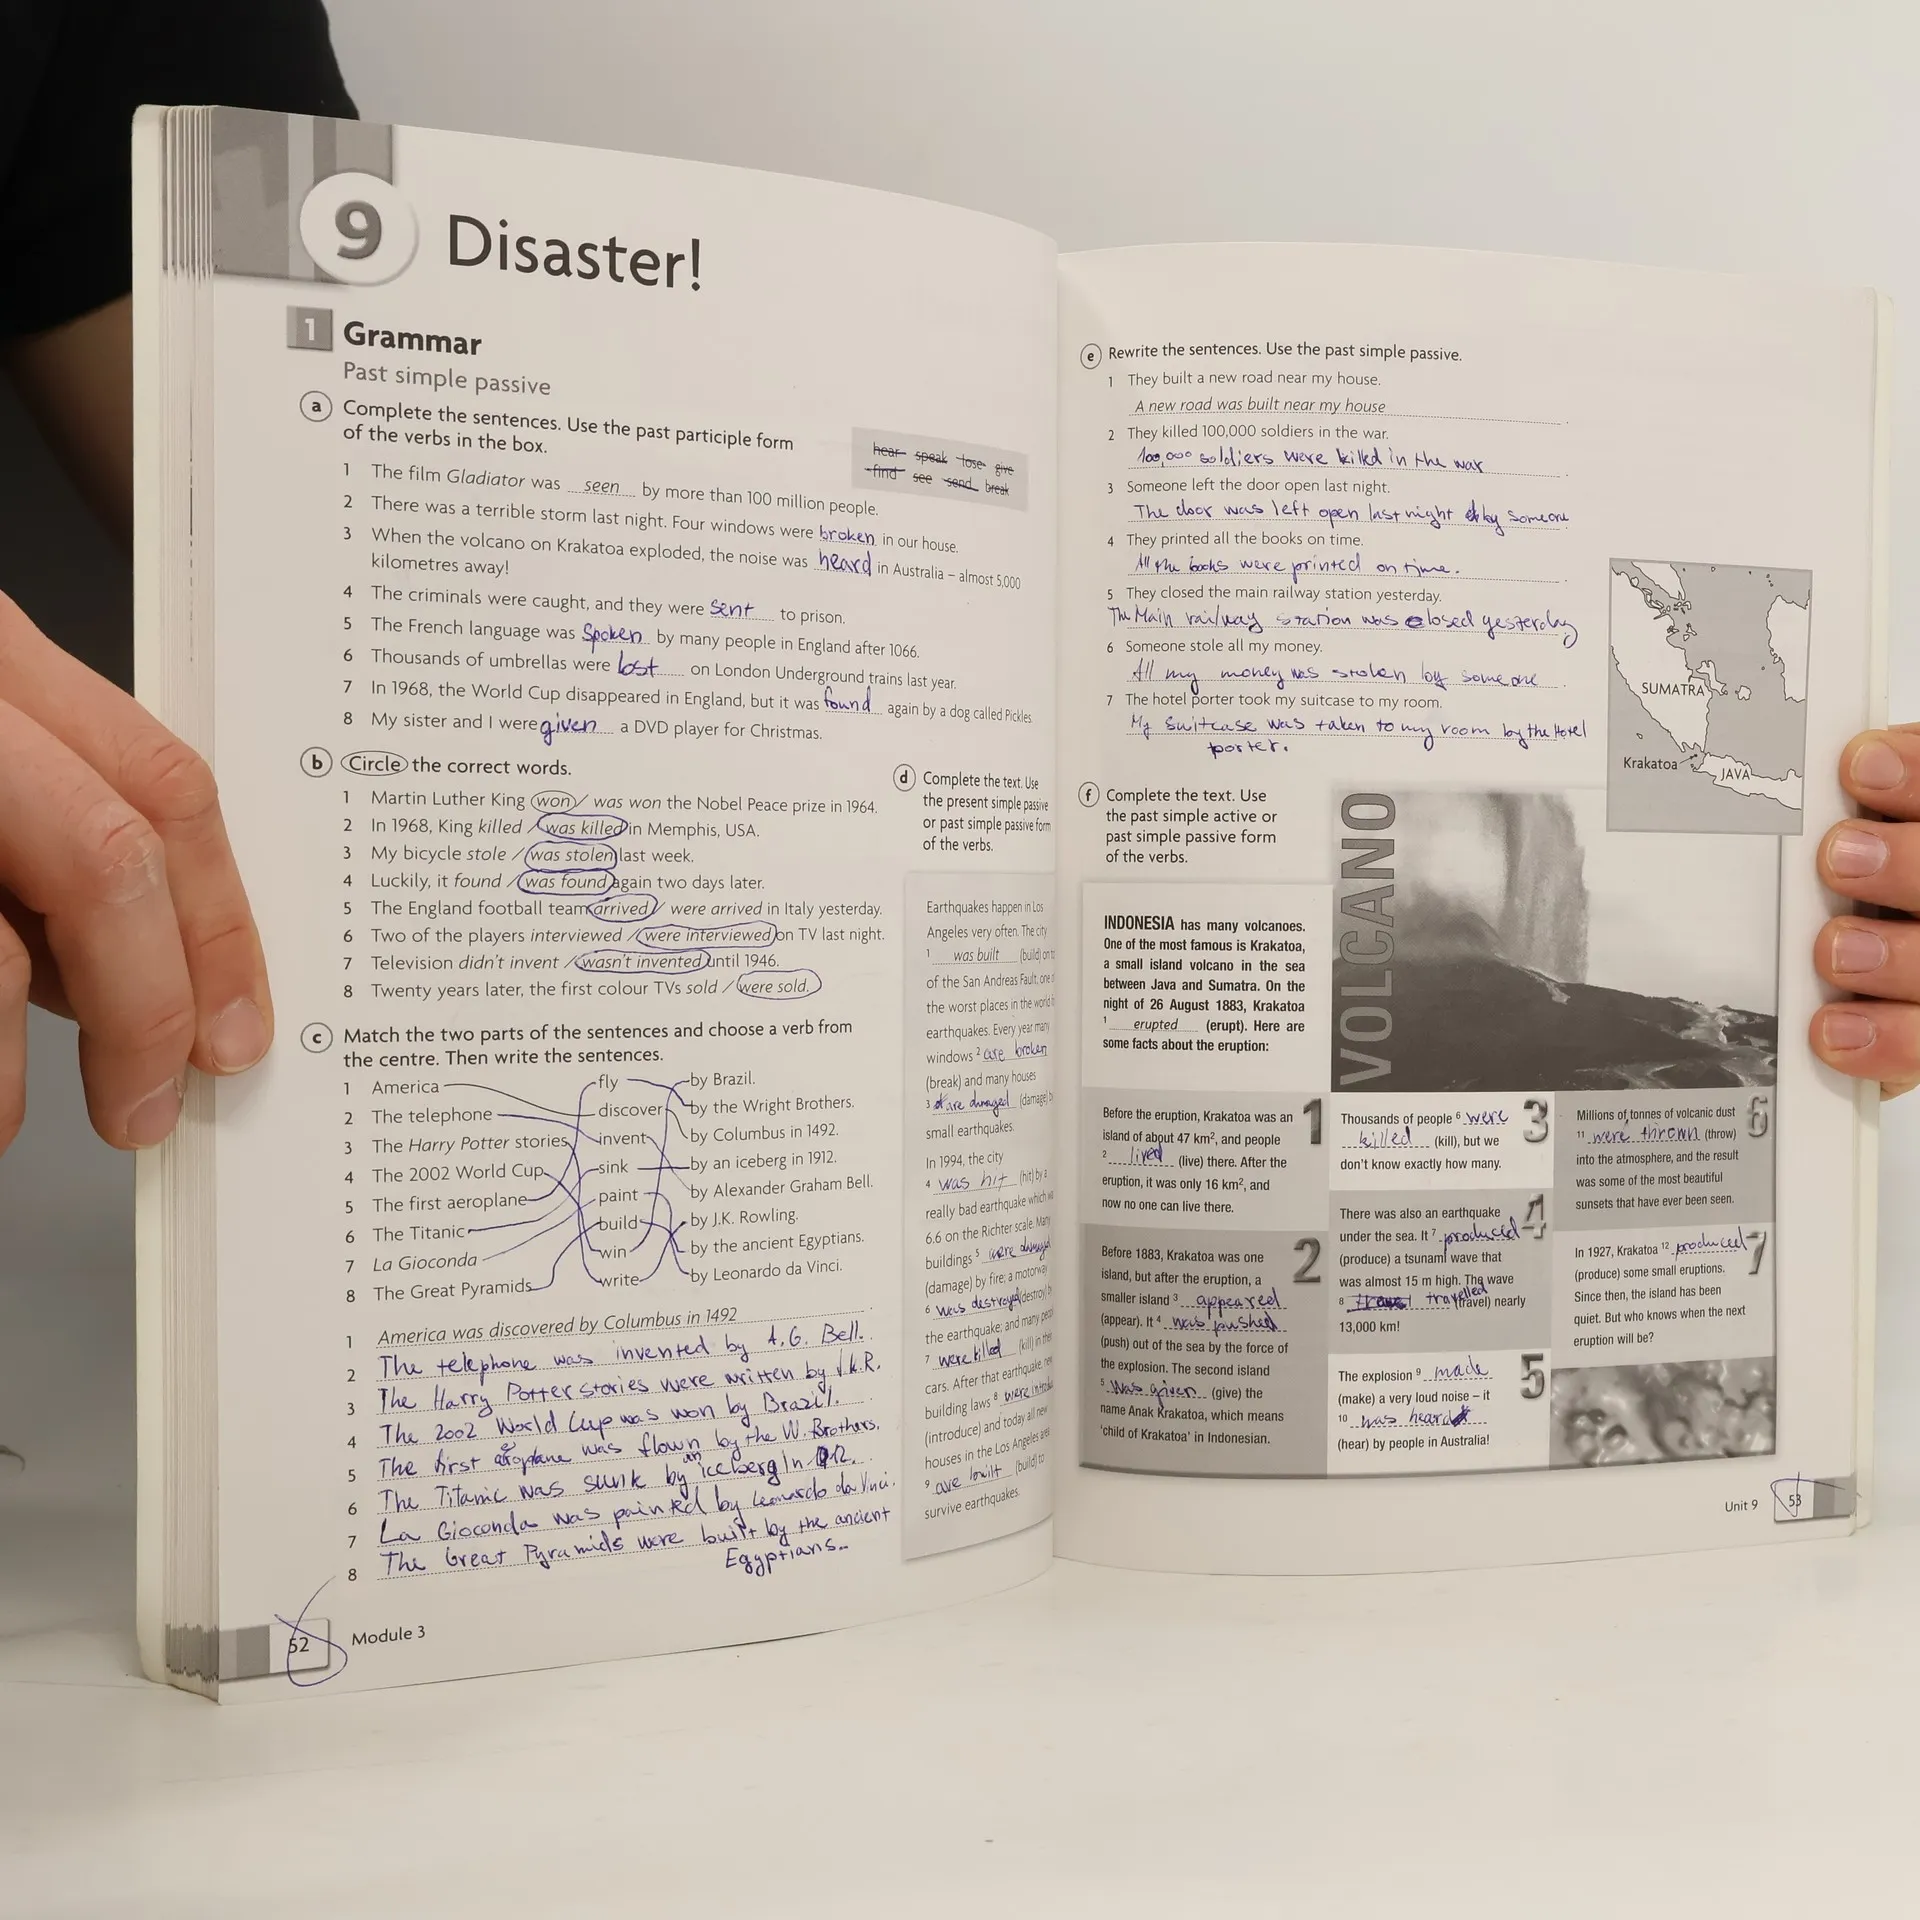 9 Disaster!
1 Grammar
Past simple passive
a Complete the sentences. Use the past participle form
of the verbs in the box.
hear speak lose give
find see send break
1 The film Gladiator was seen by more than 100 million people.
2 There was a terrible storm last night. Four windows were broken in our house.
3 When the volcano on Krakatoa exploded, the noise was heard in Australia – almost 5,000
kilometres away!
4 The criminals were caught, and they were sent to prison.
5 The French language was Spoken by many people in England after 1066.
6 Thousands of umbrellas were lost on London Underground trains last year.
7 In 1968, the World Cup disappeared in England, but it was found again by a dog called Pickles.
8 My sister and I were given a DVD player for Christmas.
b Circle the correct words.
1 Martin Luther King won / was won the Nobel Peace prize in 1964.
2 In 1968, King killed / was killed in Memphis, USA.
3 My bicycle stole / was stolen last week.
4 Luckily, it found / was found again two days later.
5 The England football team arrived / were arrived in Italy yesterday.
6 Two of the players interviewed / were interviewed on TV last night.
7 Television didn't invent / wasn't invented until 1946.
8 Twenty years later, the first colour TVs sold / were sold.
c Match the two parts of the sentences and choose a verb from
the centre. Then write the sentences.
1 America fly by Brazil.
2 The telephone discover by the Wright Brothers.
3 The Harry Potter stories invent by Columbus in 1492.
4 The 2002 World Cup sink by an iceberg in 1912.
5 The first aeroplane paint by Alexander Graham Bell.
6 The Titanic build by J.K. Rowling.
7 La Gioconda win by the ancient Egyptians.
8 The Great Pyramids write by Leonardo da Vinci.
1 America was discovered by Columbus in 1492
2 The telephone was invented by A.G. Bell.
3 The Harry Potter stories were written by J.K.R.
4 The 2002 World Cup was won by Brazil.
5 The first aeroplane was flown by the W. Brothers.
6 The Titanic was sunk by an iceberg In 12.
7 La Gioconda was painted by Leonardo da Vinci.
8 The Great Pyramids were built by the ancient
Egyptians.
52 Module 3
d Complete the text. Use
the present simple passive
or past simple passive form
of the verbs.
Earthquakes happen in Los
Angeles very often. The city
1 was built (build) on
of the San Andreas Fault, one
the worst places in the world
earthquakes. Every year many
windows 2 are broken
(break) and many houses
3 are damaged (damage)
small earthquakes.
In 1994, the city
4 was hit (hit) by a
really bad earthquake which
6.6 on the Richter scale. Many
buildings 5 were damaged
(damage) by fire; a motorway
6 was destroyed (destroy)
the earthquake; and many
7 were killed (kill) in their
cars. After that earthquake, new
building laws 8 were
(introduce) and today all new
houses in the Los Angeles area
9 are built (build) to
survive earthquakes.
e Rewrite the sentences. Use the past simple passive.
1 They built a new road near my house.
A new road was built near my house
2 They killed 100,000 soldiers in the war.
100,000 soldiers were killed in the war
3 Someone left the door open last night.
The door was left open last night by someone
4 They printed all the books on time.
All the books were printed on time.
5 They closed the main railway station yesterday.
The Main railway station was closed yesterday
6 Someone stole all my money.
All my money was stolen by someone
7 The hotel porter took my suitcase to my room.
My suitcase was taken to my room by the Hotel
porter.
SUMATRA
Krakatoa
JAVA
f Complete the text. Use
the past simple active or
past simple passive form
of the verbs.
VOLCANO
INDONESIA has many volcanoes.
One of the most famous is Krakatoa,
a small island volcano in the sea
between Java and Sumatra. On the
night of 26 August 1883, Krakatoa
1 erupted (erupt). Here are
some facts about the eruption:
1
Before the eruption, Krakatoa was an
island of about 47 km², and people
2 lived (live) there. After the
eruption, it was only 16 km², and
now no one can live there.
2
Before 1883, Krakatoa was one
island, but after the eruption, a
smaller island 3 appeared
(appear). It 4 was pushed
(push) out of the sea by the force of
the explosion. The second island
5 was given (give) the
name Anak Krakatoa, which means
'child of Krakatoa' in Indonesian.
3
Thousands of people 6 were
killed (kill), but we
don't know exactly how many.
4
There was also an earthquake
under the sea. It 7 produced
(produce) a tsunami wave that
was almost 15 m high. The wave
8 travelled (travel) nearly
13,000 km!
5
The explosion 9 made
(make) a very loud noise – it
10 was heard
(hear) by people in Australia!
6
Millions of tonnes of volcanic dust
11 were thrown (throw)
into the atmosphere, and the result
was some of the most beautiful
sunsets that have ever been seen.
7
In 1927, Krakatoa 12 produced
(produce) some small eruptions.
Since then, the island has been
quiet. But who knows when the next
eruption will be?
Unit 9 53